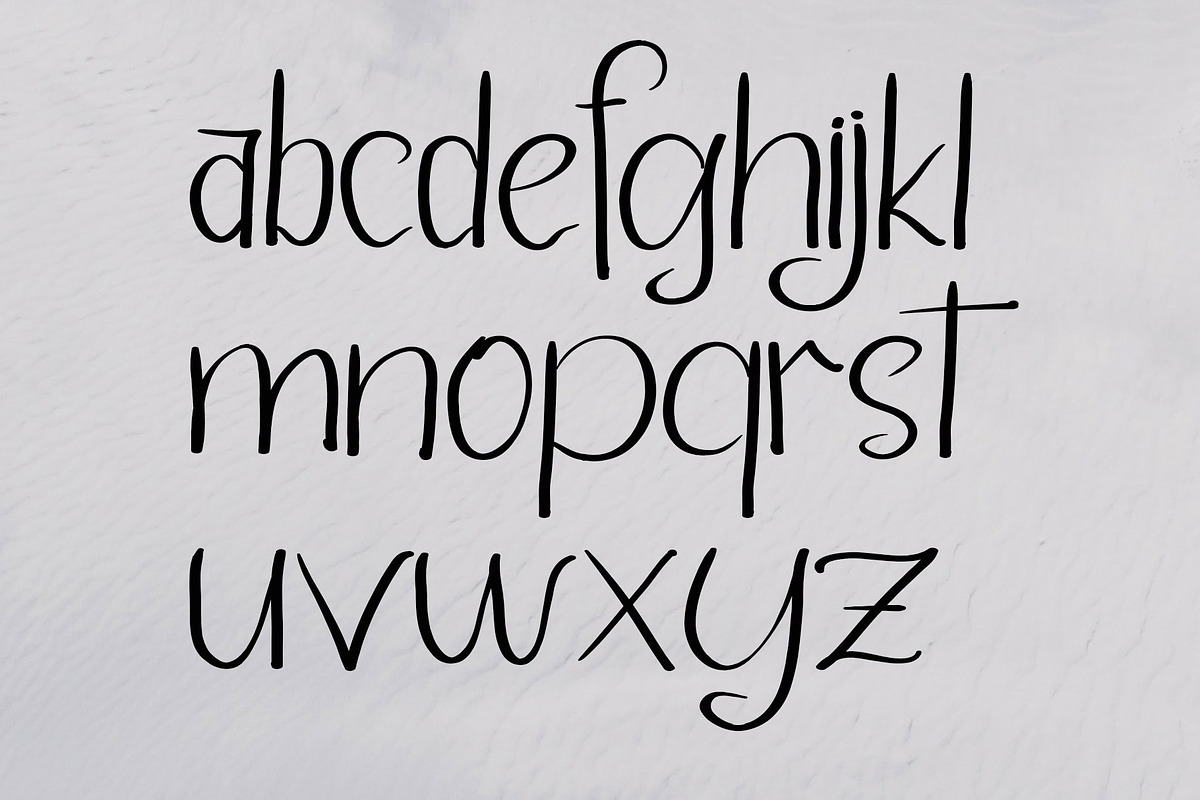 abcdefghijkl
mnopqrst
uvwxyz